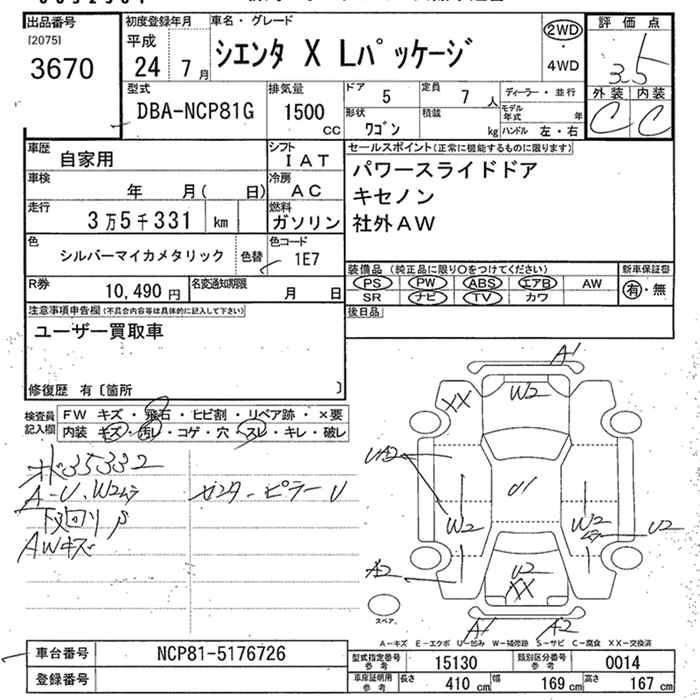 出品番号
[2075]
3670
初度登録年月
平成
24 7月
車名・グレード
シエンタ X Lパッケージ
2WD
・
4WD
評価点
3.5
外装 内装
C C
型式
DBA-NCP81G
排気量
1500
CC
ドア
5
定員
7人
形状
ワゴン
積載
kg
ディーラー・並行
モデル年式
年
ハンドル 左・右
車歴
自家用
シフト
IAT
車検
年 月( 日)
冷房
AC
走行
3万5千331 km
燃料
ガソリン
色
シルバーマイカメタリック
色替
色コード
1E7
R券
10,490円
名変通知期限
月 日
セールスポイント(正常に機能するものに限ります)
パワースライドドア
キセノン
社外AW
装備品 (純正品に限り○をつけてください)
新車保証書
PS PW ABS エアB AW
SR ナビ TV カワ
有・無
後日品
注意事項申告欄(不具合内容等は具体的に記入して下さい)
ユーザー買取車
修復歴 有〔箇所 〕
検査員記入欄
FW キズ・飛石・ヒビ割・リペア跡・×要
内装 キズ・汚レ・コゲ・穴・スレ・キレ・破レ
35332
A-U、W2ムラ
センターピラーU
下回りS
AWキズ
A1
XX
W2
U2
U
W2
W2
ムラ
U2
A2
U2
XX
A1
A2
スペア
A-キズ E-エクボ U-凹み W-補修跡 S-サビ C-腐食 XX-交換済
車台番号
NCP81-5176726
登録番号
型式指定番号
参考
15130
類別区分番号
参考
0014
車庫証明用
参考
長さ
410 cm
幅
169 cm
高さ
167 cm